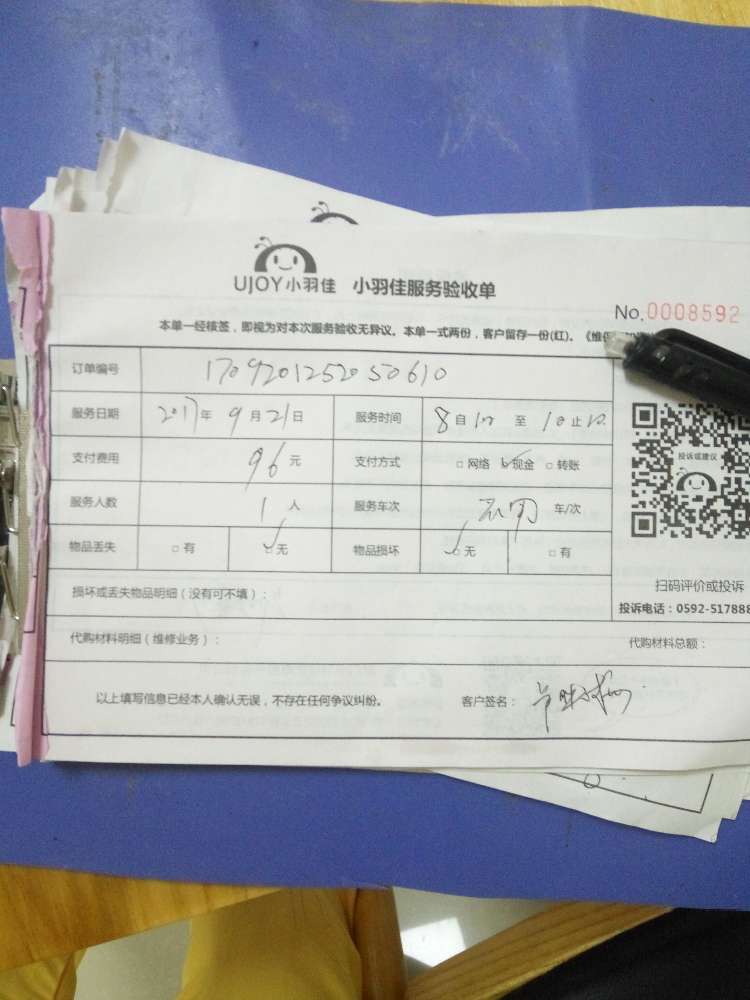 UJOY小羽佳 小羽佳服务验收单
No.0008592
本单一经核签，即视为对本次服务验收无异议。本单一式两份，客户留存一份(红)。《维
订单编号 1709201252050610
服务日期 2017年 9月21日 服务时间 8自10 至 10止10
支付费用 96元 支付方式 □网络 ☑现金 □转账
服务人数 1人 服务车次 车/次
物品丢失 □有 ☑无 物品损坏 ☑无 □有
投诉或建议
损坏或丢失物品明细（没有可不填）：
扫码评价或投诉
投诉电话：0592-517888
代购材料明细（维修业务）： 代购材料总额：
以上填写信息已经本人确认无误，不存在任何争议纠纷。 客户签名：